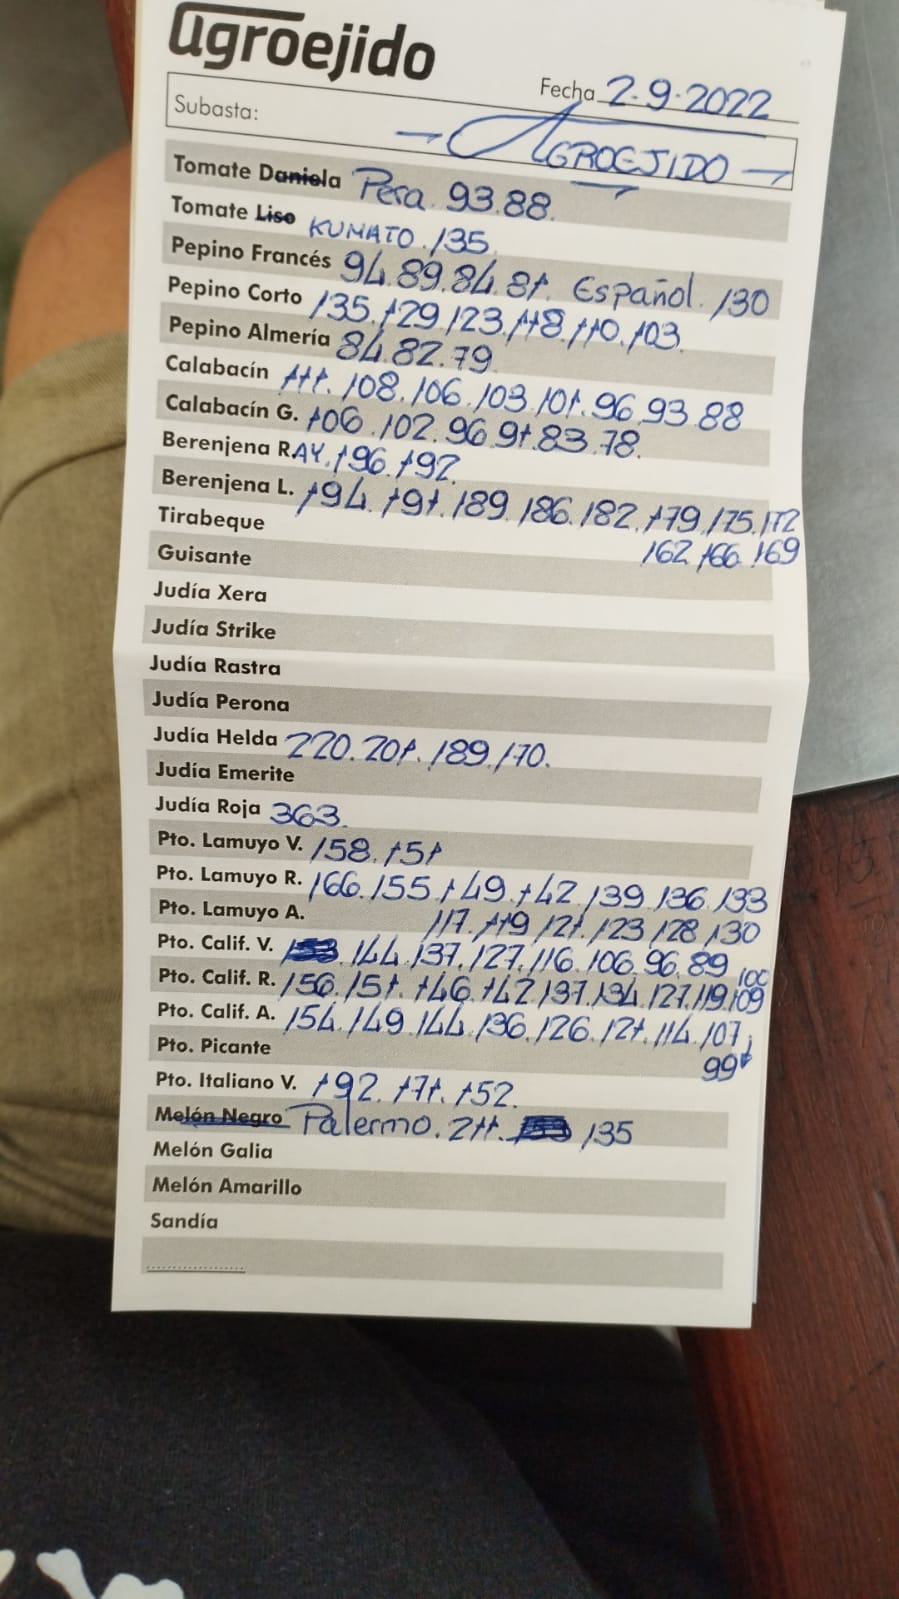 agroejido
Fecha 2-9-2022
Subasta: - AGROEJIDO -
Tomate Daniela Pera. 93.88.
Tomate Liso KUMATO. 135.
Pepino Francés 94.89.84.81. Español. 130
Pepino Corto 135.129.123.118.110.103.
Pepino Almería 84.82.79
Calabacín 111.108.106.103.101.96.93.88
Calabacín G. 106.102.96.91.83.78.
Berenjena RAY. 196.192.
Berenjena L. 194.191.189.186.182.179.175.172
Tirabeque 162.166.169
Guisante
Judía Xera
Judía Strike
Judía Rastra
Judía Perona
Judía Helda 220.201.189.170.
Judía Emerite
Judía Roja 363.
Pto. Lamuyo V. 158.151
Pto. Lamuyo R. 166.155.149.142.139.136.133
Pto. Lamuyo A. 117.119.121.123.128.130
Pto. Calif. V. 144.137.127.116.106.96.89
100
Pto. Calif. R. 156.151.146.142.137.134.127.119.109
Pto. Calif. A. 154.149.144.136.126.121.114.107
Pto. Picante 99
Pto. Italiano V. 192.171.152.
Melón Negro Palermo. 211. 135
Melón Galia
Melón Amarillo
Sandía
....................